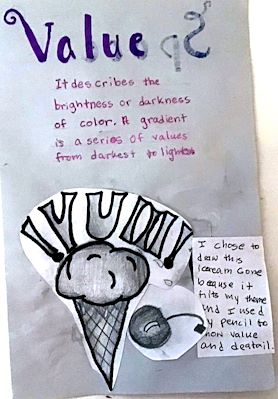 Value
It describes the
brightness or darkness
of color. A gradient
is a series of values
from darkest to lightest
YUM
I chose to
draw this
icecream cone
because it
fits my theme
and I used
my pencil to
show value
and deatail.